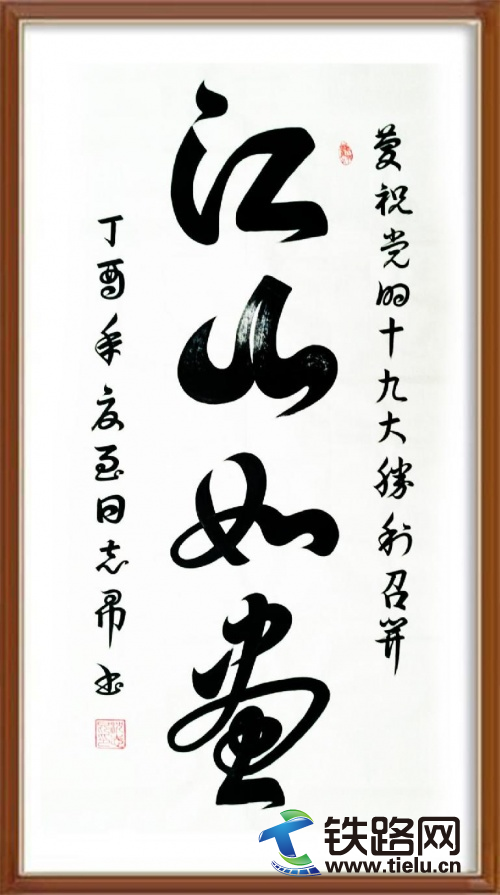 慶祝党的十九大勝利召開
江山如畫
丁酉年夏至同志书
铁路网
www.tielu.cn